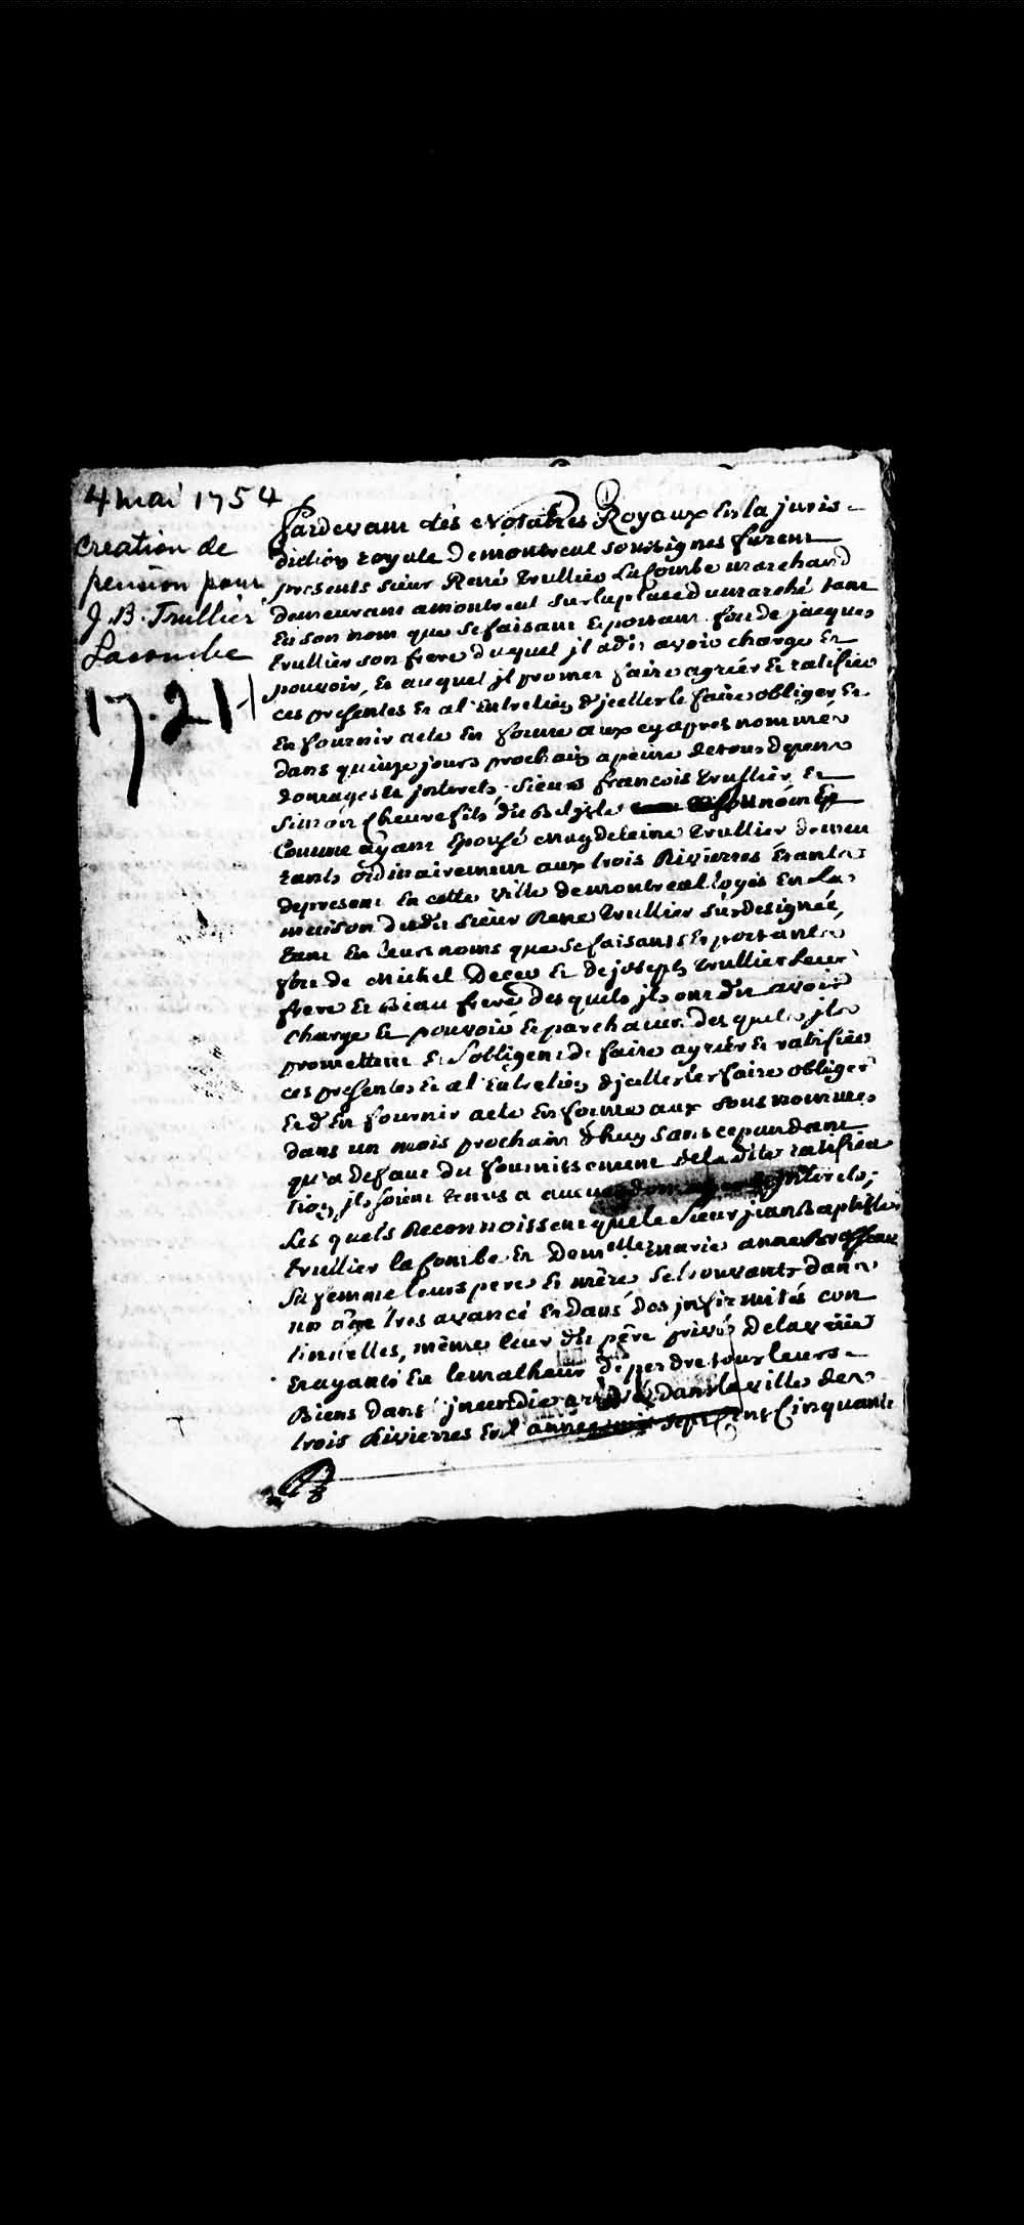 4 mai 1754
creation de
pension pour
J. B. Trullier
Lacombe
17.21
Pardevant les Notaires Royaux En la juris-
diction royale de montreal soussignes furent
presents sieur René trullier Lacombe marchand
demeurant a montreal sur la place du marché tant
En son nom que se faisant & portant fort de jacques
trullier son frere duquel il a dit avoir charge Et
pouvoir, Et auquel il promet faire agréer Et ratifier
ces presentes Et a l'Entretien d'jcelles le faire obliger Et
En fournir acte En forme aux cy apres nommés
dans quinze jours prochain a peine de tous depens
domages & jnterets, Sieurs francois trullier, Et
Simon Chevrefils dit Belisle nom Et
Comme ayant Epousé Magdeleine trullier demeu
rants ordinairement aux trois Rivierres Etants
de present En cette ville de montreal logés En La
maison dudit sieur Rene trullier susdesignée,
tant En Leurs noms que se faisants & portants
fort de Michel Et de joseph trullier Leur
frere Et Beau frere desquels jls ont dit avoir
charge Et pouvoir Et par chacun desquels jls
promettent Et S'obligent de faire agréer Et ratifier
ces presentes Et a l'Entretien d'jcelles les faire obliger
Et d'En fournir acte En forme aux sous nommés
dans un mois prochain d'huy sans cependant
qu'a defaut du fournissement de la dite ratifica
tion, jls soient tenus a aucuns jnterets;
Les quels Reconnoissent que le Sieur jean Baptiste
trullier lacombe Et Demoiselle marie anne
sa femme leurs pere Et mère se trouvants dans
un âge tres avancé Et dans des jnfirmités con
tinuelles, même leur dit père privé de la veüe
Et ayants Eu le malheur de perdre tous leurs
Biens dans l'jncendie arrivé dans la ville des
trois Rivierres En l'année mil sept Cent Cinquante